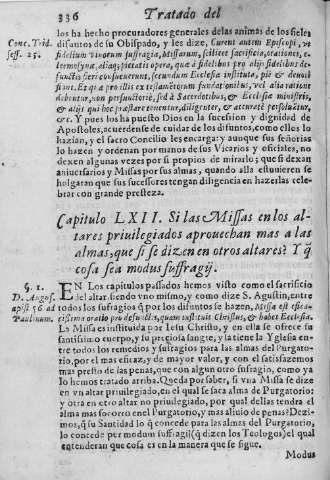 336 Tratado del
los ha hecho procuradores generales delas animas de los fieles
Conc. Trid.
sess. 25.
difuntos de su Obispado, y les dize, Curent autem Episcopi, vt
fidelium viuorum suffragia, Missarum, scilicet sacrificia, orationes, e-
lemosynæ, aliaq; pietatis opera, quæ à fidelibus pro alijs fidelibus de-
functis fieri consueuerunt, secundum Ecclesiæ instituta, piè & deuotè
fiant. Et quæ pro illis ex testatorum fundationibus, vel alia ratione
debentur, non perfunctoriè, sed à Sacerdotibus, & Ecclesiæ ministris,
& alijs qui hoc præstare tenentur, diligenter, & accuratè persoluātur,
&c. Y pues los ha puesto Dios en la sucession y dignidad de
Apostoles, acuerdense de cuidar de los difuntos, como ellos lo
hazian, y el sacro Concilio les encarga: y aunque sus señorias
lo hazen y ordenan por manos de sus Vicarios y oficiales, no
dexen algunas vezes por si propios de mirarlo; que si dexan
aniuersarios y Missas por sus almas, quando alla estuuieren se
holgaran que sus sucessores tengan diligencia en hazerlas cele-
brar con grande presteza.
Capitulo LXII. Si las Missas en los al-
tares priuilegiados aprouechan mas a las
almas, que si se dizen en otros altares? Y q̃
cosa sea modus suffragij.
§. 1.
D. Augus.
epist 56 ad
Paulinum.
EN Los capitulos passados hemos visto como el sacrificio
del altar siendo vno mismo, y como dize S. Agustin, entre
todos los sufragios q̃ por los difuntos se hazen, Missa est effica-
cissima oratio pro defunctis, quam instituit Christus, & habet Ecclesia.
La Missa es instituida por Iesu Christo, y en ella se ofrece su
santissimo cuerpo, y su preciosa sangre, y la tiene la Yglesia en-
tre todos los remedios y sufragios para las almas del Purgato-
rio, por el mas eficaz, y de mayor valor, y con el satisfazemos
mas presto de las penas, que con algun otro sufragio, como ya
lo hemos tratado arriba. Queda por saber, si vna Missa se dize
en vn altar priuilegiado, en el qual se saca alma de Purgatorio:
y otra en otro altar no priuilegiado, por qual dellas tendra el
alma mas socorro en el Purgatorio, y mas aliuio de penas? Dezi-
mos, q̃ su Santidad lo q̃ concede para las almas del Purgatorio,
lo concede per modum suffragij (q̃ dizen los Teologos) el qual
entenderan que cosa es en la manera que se sigue.
Modus